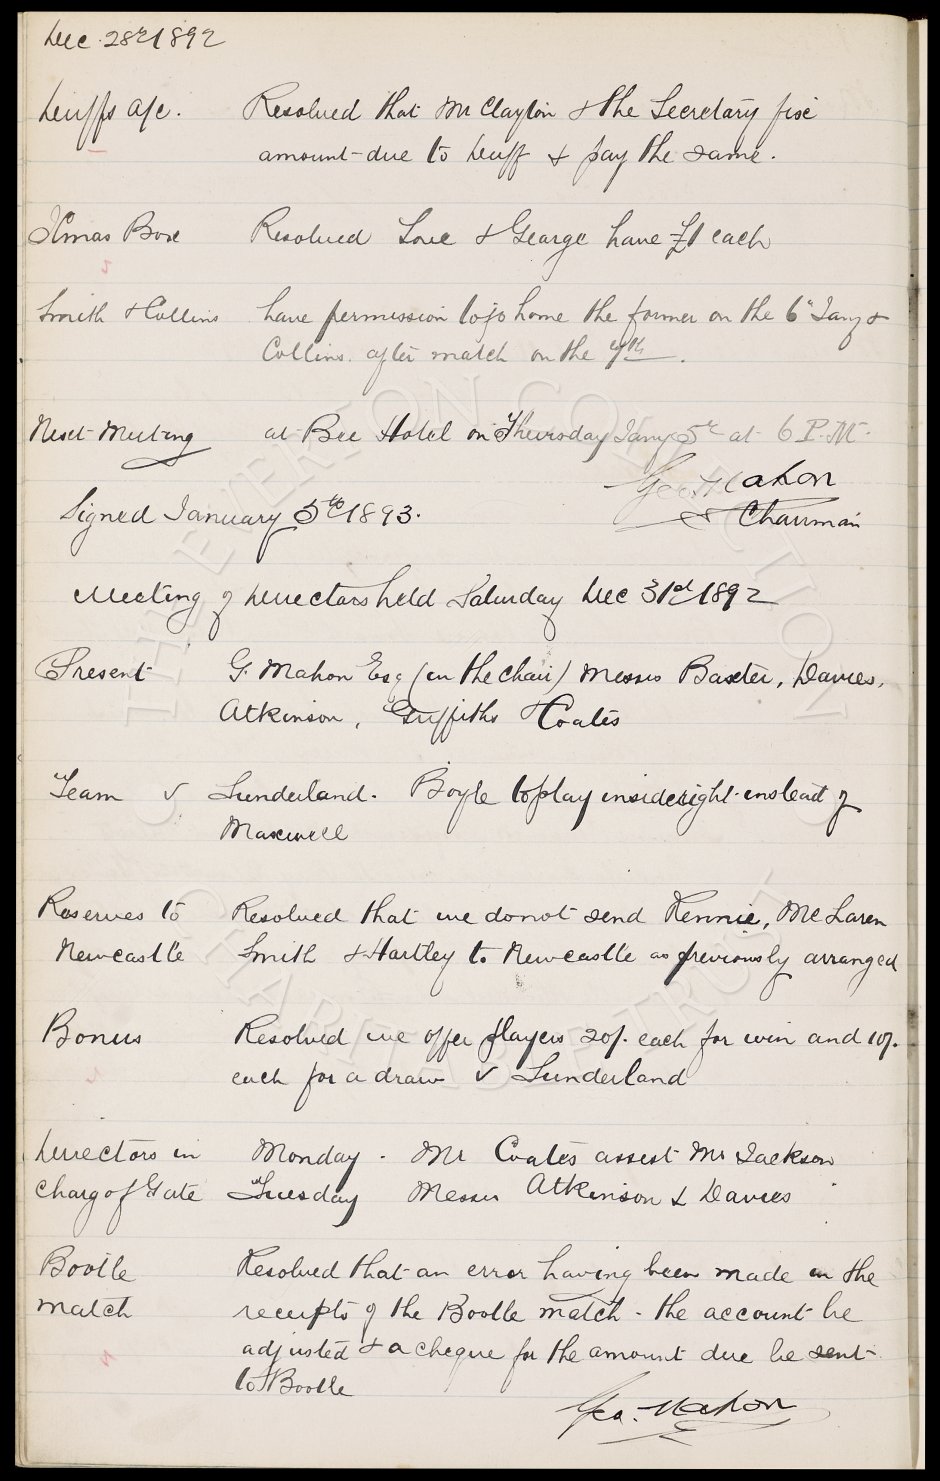 Dec. 28th 1892
Duffs a/c. Resolved that Mr Clayton & the Secretary fix
amount due to Duff & pay the same.
Xmas Box Resolved Love & George have £1 each
Smith & Collins have permission to go home the former on the 6th Jany &
Collins. after match on the 7th.
Next Meeting at Bee Hotel on Thursday Jany 5th at 6 P.M.
Geo. Mahon
Chairman
Signed January 5th 1893.
Meeting of Directors held Saturday Dec 31st 1892
Present G. Mahon Esq (in the chair) Messrs Baxter, Davies,
Atkinson, Griffiths & Coates
Team v Sunderland. Boyle to play inside right instead of
Maxwell
Reserves to Resolved that we do not send Rennie, McLaren
Newcastle Smith & Hartley to Newcastle as previously arranged
Bonus Resolved we offer players 20/. each for win and 10/.
each for a draw v Sunderland
Directors in Monday. Mr Coates assist Mr Jackson
charg of Gate Tuesday Messrs Atkinson & Davies
Bootle Resolved that an error having been made in the
match receipts of the Bootle match - the account be
adjusted & a cheque for the amount due be sent
to Bootle
Geo. Mahon
THE EVERTON COLLECTION
CHARITABLE TRUST